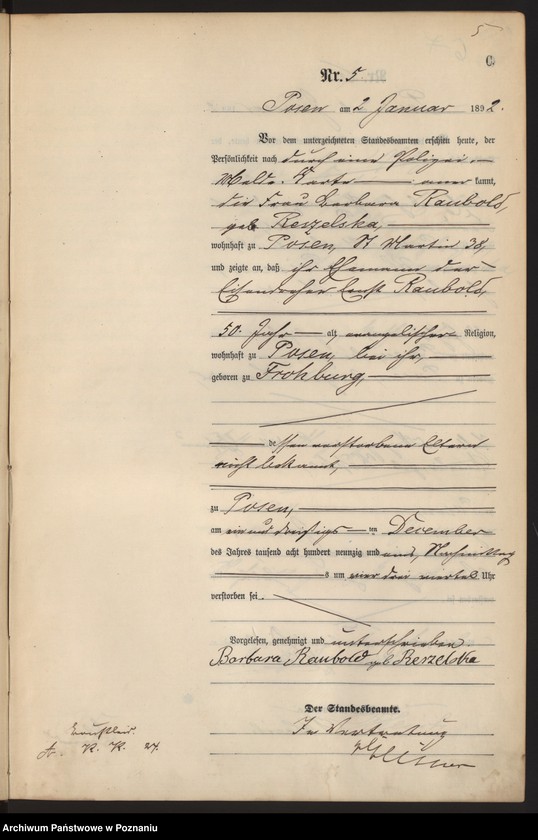 5
C.
Nr. 5
Posen am 2 Januar 1892.
Vor dem unterzeichneten Standesbeamten erschien heute, der
Persönlichkeit nach durch eine Polizei-
Melde-Karte anerkannt,
die Frau Barbara Raubold,
geb Reszelska,
wohnhaft zu Posen, St Martin 38,
und zeigte an, daß ihr Ehemann der
Eisendreher Ernst Raubold,
50 Jahr alt, evangelischer Religion,
wohnhaft zu Posen, bei ihr,
geboren zu Frohburg,
dessen verstorbene Eltern
nicht bekannt,
zu Posen,
am ein und dreißigsten December
des Jahres tausend acht hundert neunzig und eins, Nachmittag
s um vier drei viertel Uhr
verstorben sei.
Vorgelesen, genehmigt und unterschrieben
Barbara Raubold geb Rerzelska
Der Standesbeamte.
In Vertretung
K. K. 24.
Archiwum Państwowe w Poznaniu